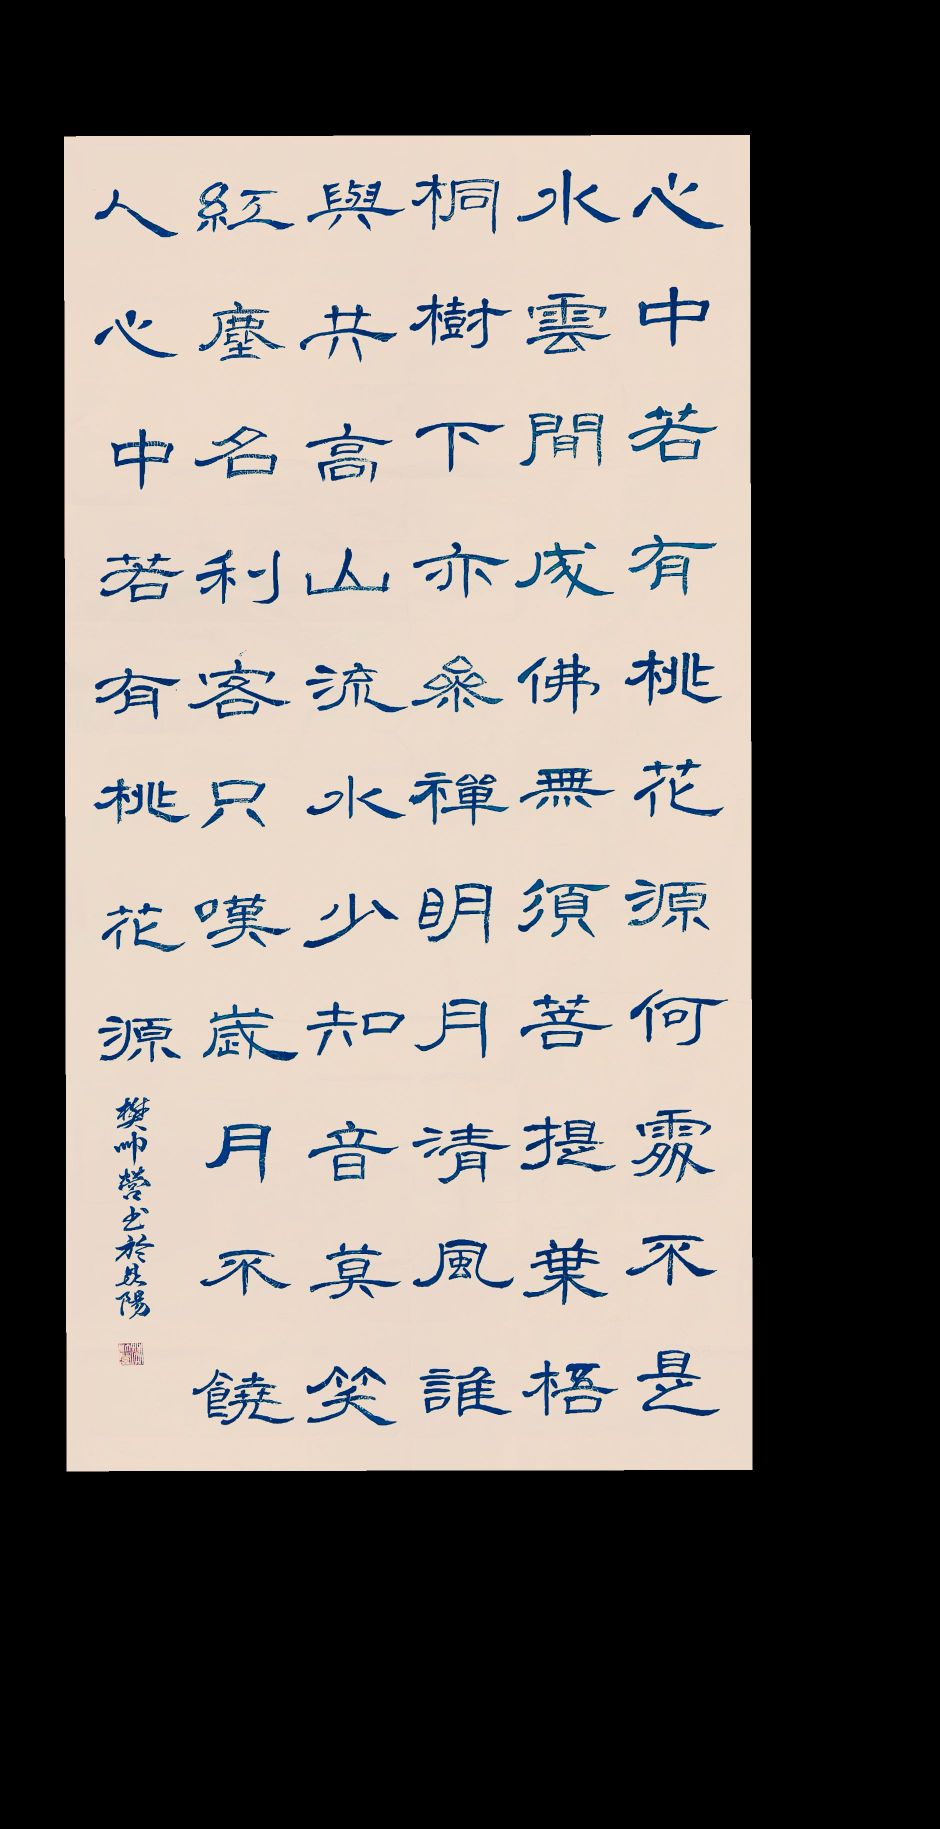 心中若有桃花源何處不是
水雲間成佛無須菩提葉梧
桐樹下亦參禪明月清風誰
與共高山流水少知音莫笑
紅塵名利客只嘆歲月不饒
人心中若有桃花源
樊帅营书於昆陽